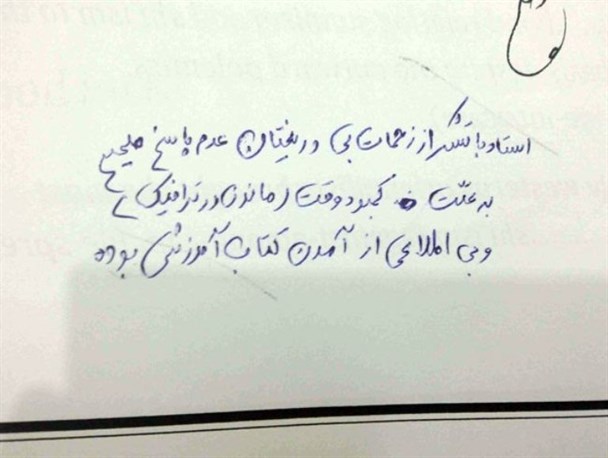 استاد با تشکر از زحمات بی دریغتان عدم پاسخ صحیح
به علت کمبود وقت (ماندن در ترافیک)
وبی اطلاعی از آمدن کتاب آموزشی بوده